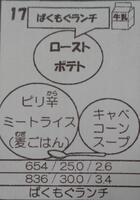 17
ぱくもぐランチ
牛乳
ロースト
ポテト
ピリ辛
ミートライス
(麦ごはん)
キャベ
コーン
スープ
654 / 25.0 / 2.6
836 / 30.0 / 3.4
ぱくもぐランチ